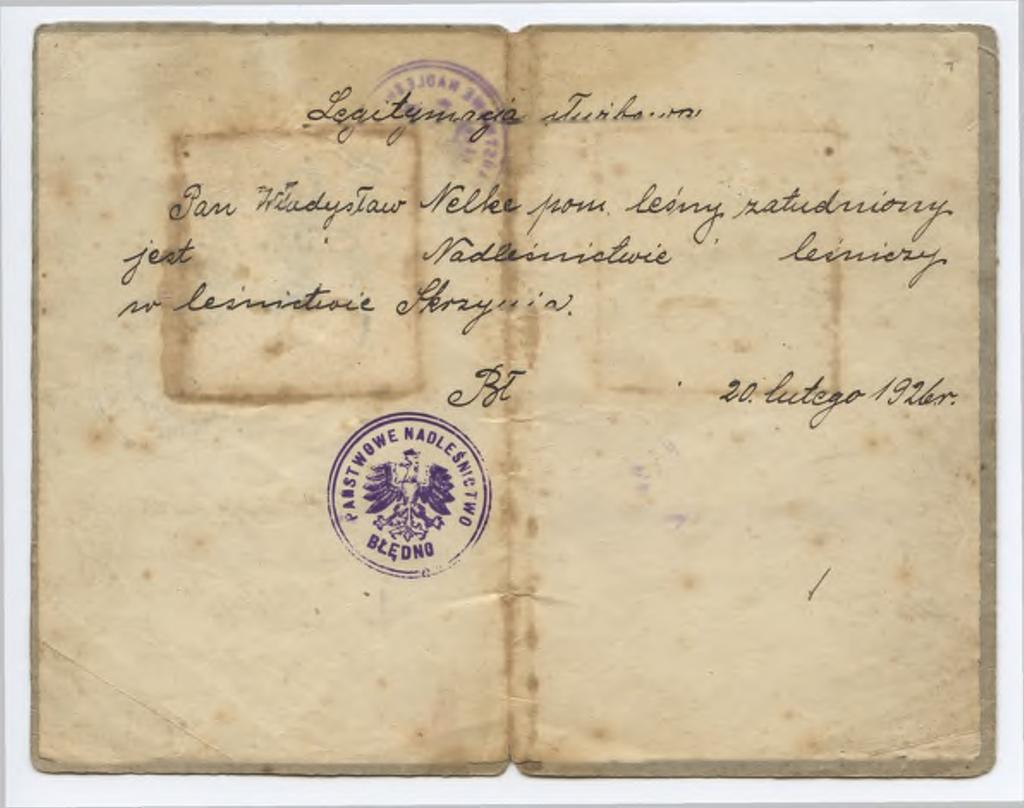 Legitymacja służbowa
Pan Władysław Nelke pom. leśny zatudniony
jest Nadleśnictwie leśniczy
w leśnictwie Skrzynia.
Bł 20. lutego 1926r.
PAŃSTWOWE NADLEŚNICTWO
BŁĘDNO